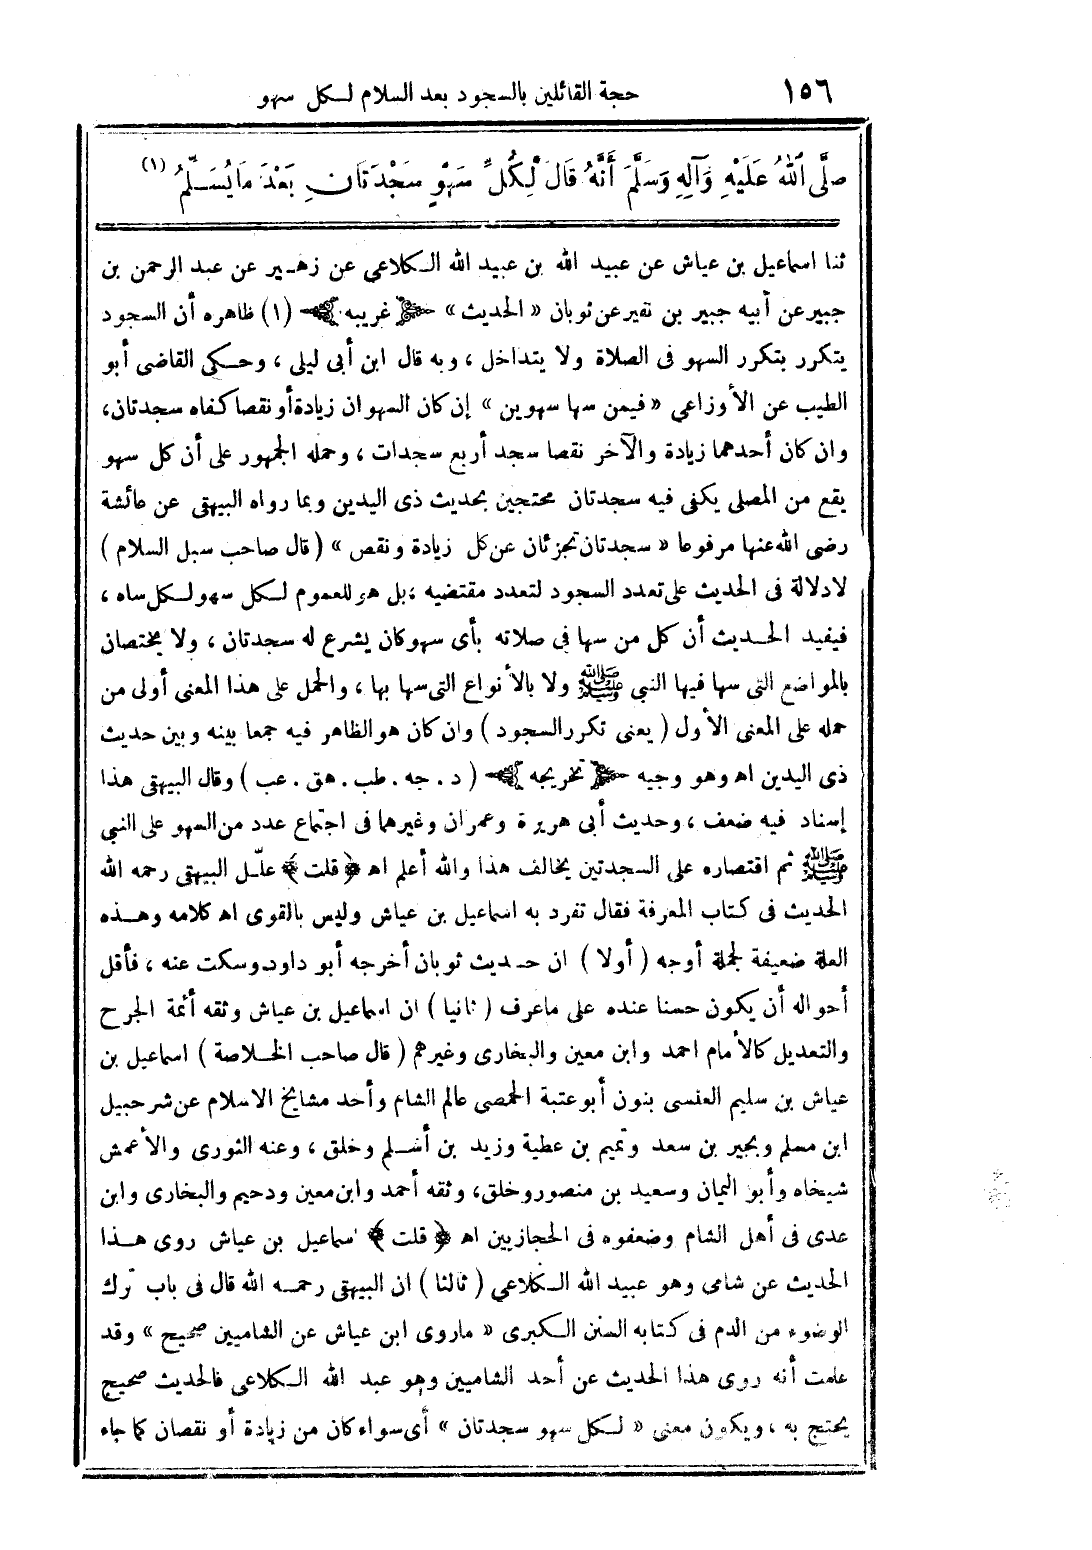 ١٥٦ حجة القائلين بالسجود بعد السلام لكل سهو
صلَّى اللهُ عَلَيْهِ وَآلِهِ وَسَلَّمَ أَنَّهُ قَالَ لِكُلِّ سَهْوٍ سَجْدَتَانِ بَعْدَ مَا يُسَلِّمُ (١)
ثنا اسماعيل بن عياش عن عبيد الله بن عبيد الله الكلاعي عن زهير عن عبد الرحمن بن
جبير عن أبيه جبير بن نفير عن ثوبان « الحديث » غريبه (١) ظاهره أن السجود
يتكرر بتكرر السهو فى الصلاة ولا يتداخل ، وبه قال ابن أبى ليلى ، وحكى القاضى أبو
الطيب عن الأوزاعي « فيمن سها سهوين » إن كان السهوان زيادة أو نقصا كفاه سجدتان،
وان كان أحدهما زيادة والآخر نقصا سجد أربع سجدات ، وحمله الجمهور على أن كل سهو
يقع من المصلى يكفى فيه سجدتان محتجين بحديث ذى اليدين وبما رواه البيهقى عن عائشة
رضى الله عنها مرفوعا « سجدتان تجزئان عن كل زيادة ونقص » ( قال صاحب سبل السلام )
لا دلالة فى الحديث على تعدد السجود لتعدد مقتضيه ، بل هو للعموم لكل سهو لكل ساه ،
فيفيد الحديث أن كل من سها فى صلاته بأى سهو كان يشرع له سجدتان ، ولا يختصان
بالمواضع التى سها فيها النبي ﷺ ولا بالأنواع التى سها بها ، والحمل على هذا المعنى أولى من
حمله على المعنى الأول ( يعنى تكرر السجود ) وان كان هو الظاهر فيه جمعا بينه وبين حديث
ذى اليدين اهـ وهو وجيه تخريجه ( د . جه . طب . هق . عب ) وقال البيهقى هذا
إسناد فيه ضعف ، وحديث أبى هريرة وعمران وغيرهما فى اجتماع عدد من السهو على النبي
ﷺ ثم اقتصاره على السجدتين يخالف هذا والله أعلم اهـ ﴿ قلت ﴾ علّل البيهقى رحمه الله
الحديث فى كتاب المعرفة فقال تفرد به اسماعيل بن عياش وليس بالقوى اهـ كلامه وهذه
العلة ضعيفة لجملة أوجه ( أولا ) ان حديث ثوبان أخرجه أبو داود وسكت عنه ، فأقل
أحواله أن يكون حسنا عنده على ما عرف ( ثانيا ) ان اسماعيل بن عياش وثقه أئمة الجرح
والتعديل كالأمام احمد وابن معين والبخارى وغيرهم ( قال صاحب الخلاصة ) اسماعيل بن
عياش بن سليم العنسى بنون أبو عتبة الحمصى عالم الشام وأحد مشايخ الاسلام عن شرحبيل
ابن مسلم وبحير بن سعد وتميم بن عطية وزيد بن أسلم وخلق ، وعنه الثورى والأعمش
شيخاه وأبو اليمان وسعيد بن منصور وخلق، وثقه أحمد وابن معين ودحيم والبخارى وابن
عدى فى أهل الشام وضعفوه فى الحجازيين اهـ ﴿ قلت ﴾ اسماعيل بن عياش روى هذا
الحديث عن شامى وهو عبيد الله الكلاعي ( ثالثا ) ان البيهقى رحمه الله قال فى باب ترك
الوضوء من الدم فى كتابه السنن الكبرى « ما روى ابن عياش عن الشاميين صحيح » وقد
علمت أنه روى هذا الحديث عن أحد الشاميين وهو عبد الله الكلاعى فالحديث صحيح
يحتج به ، ويكون معنى « لكل سهو سجدتان » أى سواء كان من زيادة أو نقصان كما جاء